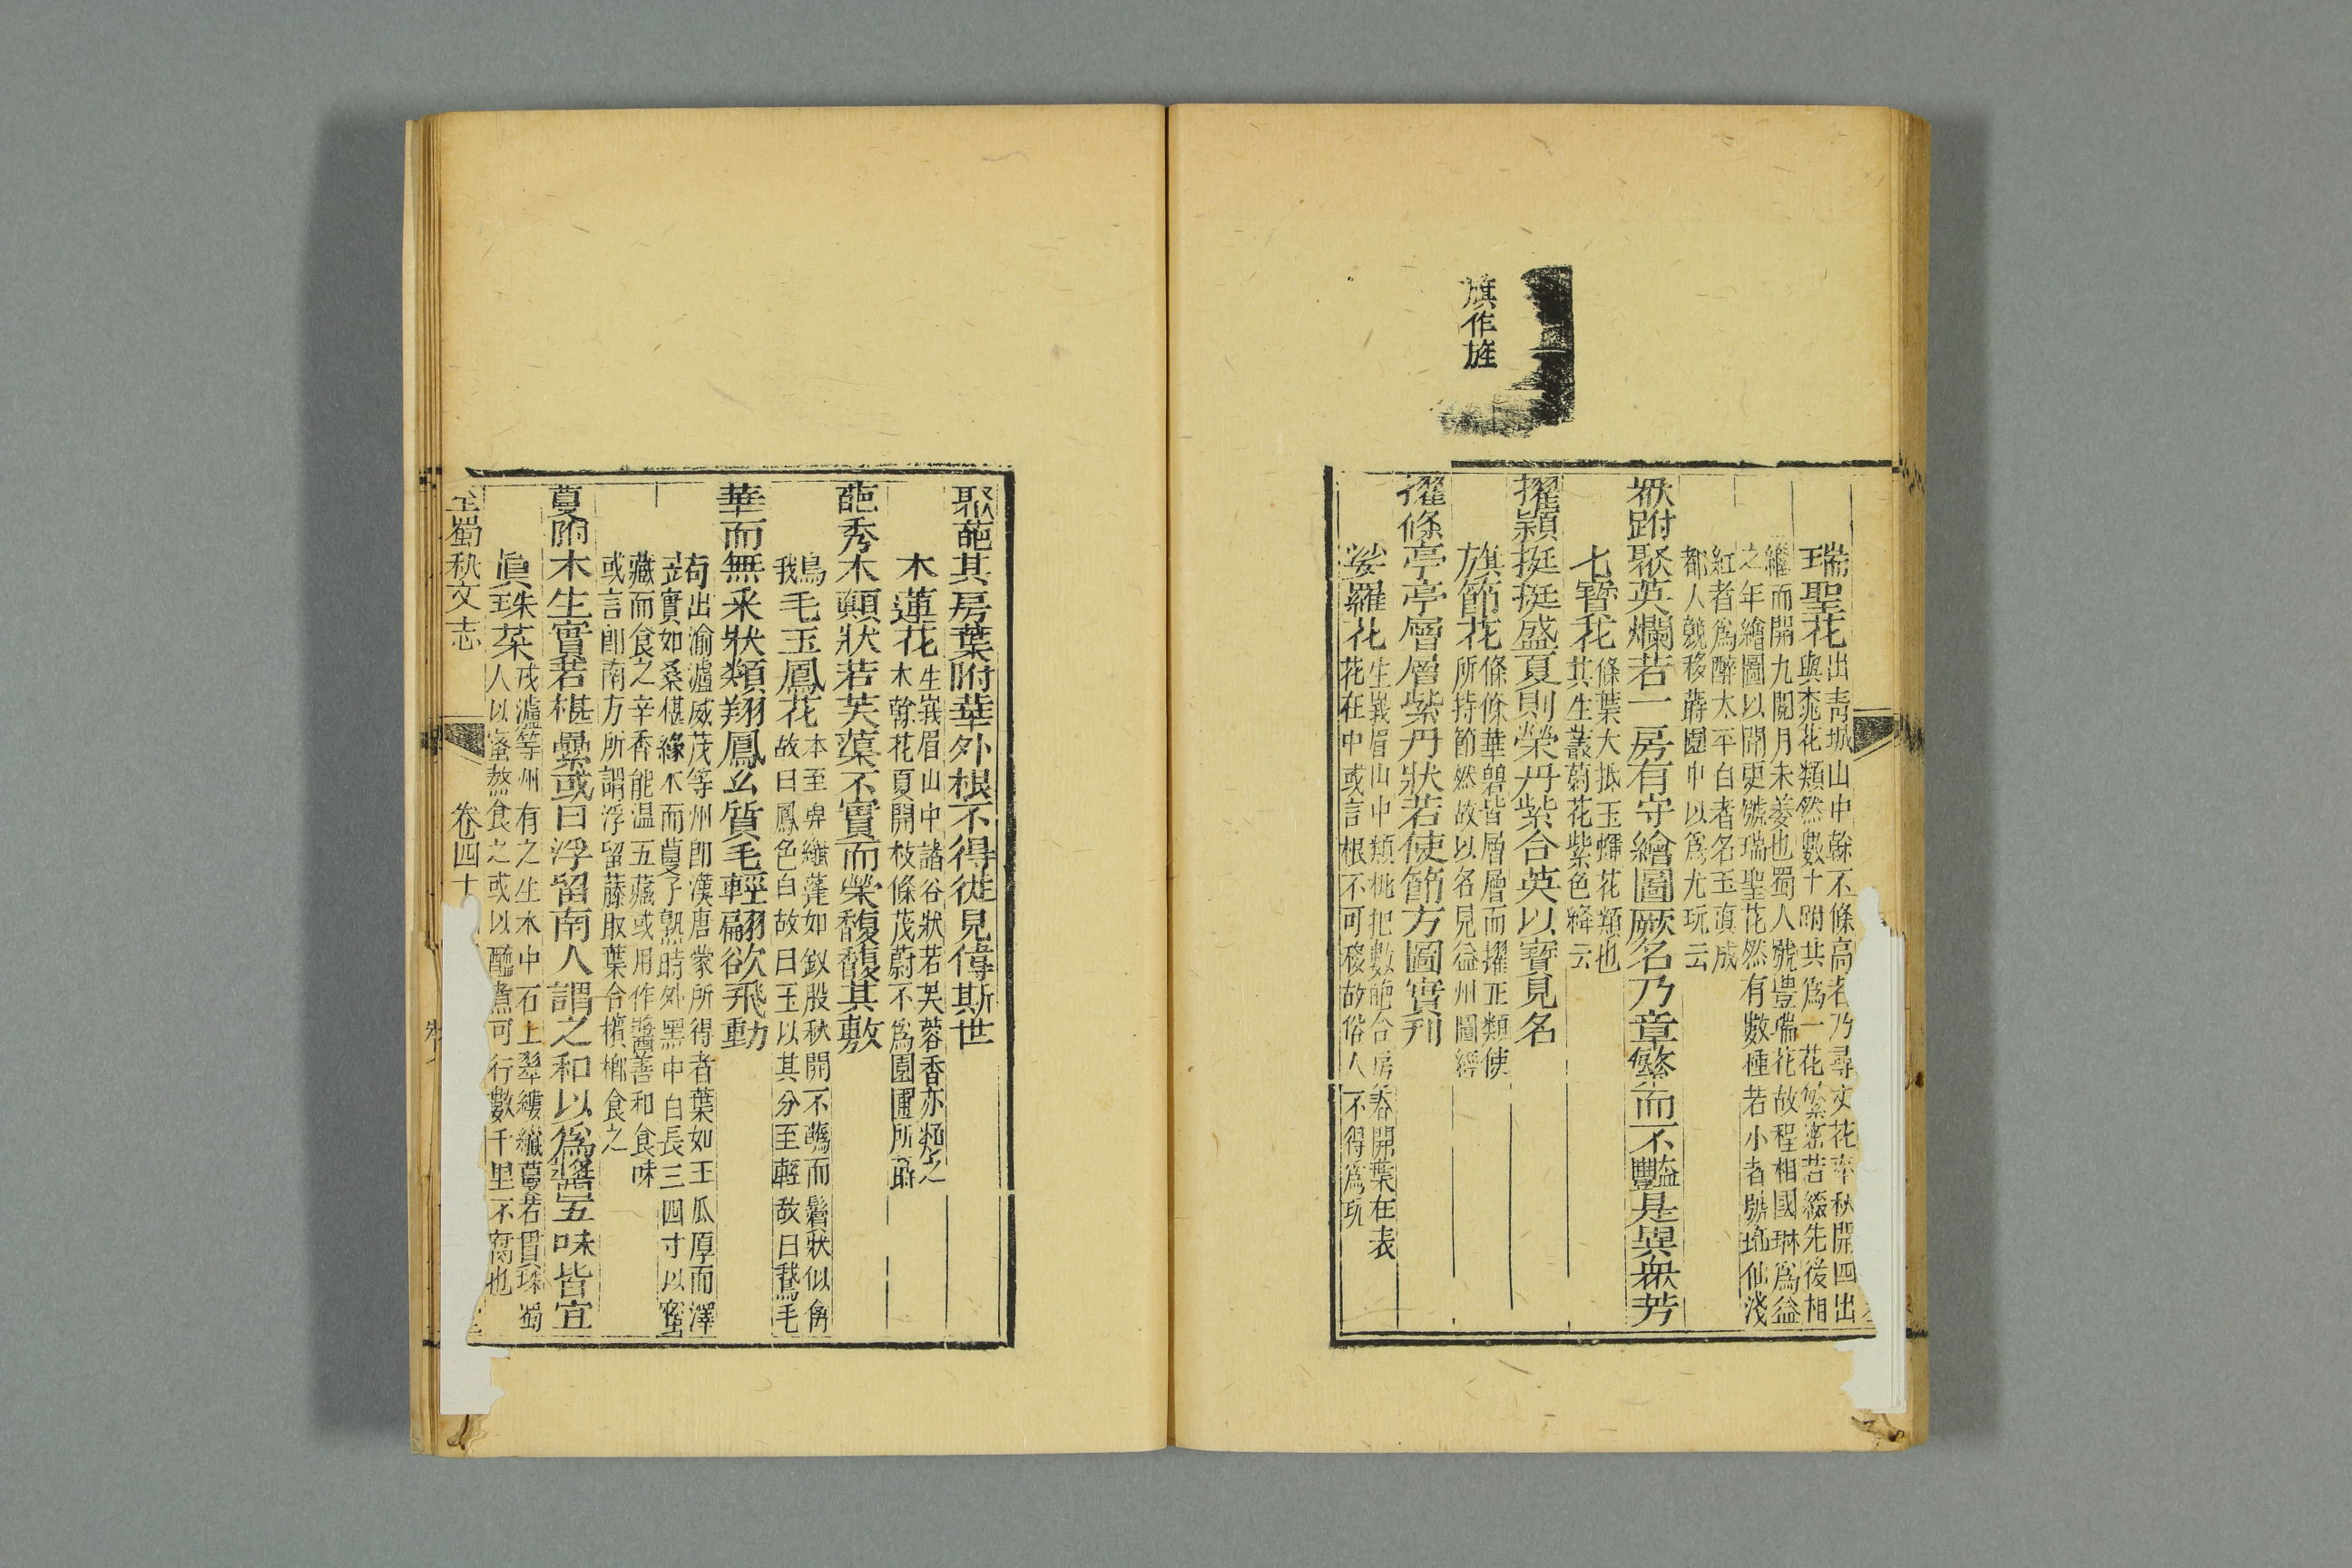 旗作旌
瑞聖花
出靑城山中幹不條高者乃尋丈花率秋開四出
與桃花類然數十跗共爲一花繁密苦綴先後相
繼而開九閱月未萎也蜀人號豐瑞花故程相國琳爲益
之年繪圖以聞更號瑞聖花然有數種若小者號瑞仙淺
紅者爲醉太平白者名玉眞成
都人競移蒔園中以爲尤玩云
衆跗聚英爛若一房有守繪圖厥名乃章繁而不豔是異衆芳
七寶花
條葉大抵玉蟬花類也
其生叢蔚花紫色絳云
擢穎挺挺盛夏則榮丹紫合英以寶見名
旗節花
條條華碧皆層層而擢正類使
所持節然故以名見益州圖經
擢條亭亭層層紫丹狀若使節方圖實刊
娑羅花
生峩眉山中類枇杷數葩合房春開葉在表
花在中或言根不可移故俗人不得爲玩
聚葩其房葉附華外根不得徙見偉斯世
木蓮花
生峩眉山中諸谷狀若芙蓉香亦類之
木幹花夏開枝條茂蔚不爲園圃所蒔
葩秀木顚狀若芙蕖不實而榮馥馥其敷
鵝毛玉鳳花
本至卑纖蓬如釵股秋開不蘤而鬚狀似禽
故曰鳳色白故曰玉以其分至輕故曰鵝毛
華而無釆狀類翔鳳玄質毛輕翩欲飛動
蒟
出渝瀘威茂等州卽漢唐蒙所得者葉如王瓜厚而澤
實如桑椹緣木而蔓子熟時外黑中白長三四寸以蜜
藏而食之辛香能温五藏或用作醬善和食味
或言卽南方所謂浮留藤取葉合檳榔食之
蔓附木生實若椹纍或曰浮留南人謂之和以爲醬五味皆宜
眞珠菜
戎瀘等州有之生水中石上翠縷纖蔓若貫珠蜀
人以蜜熬食之或以醯煮可行數千里不腐也
全蜀秇文志
卷四十